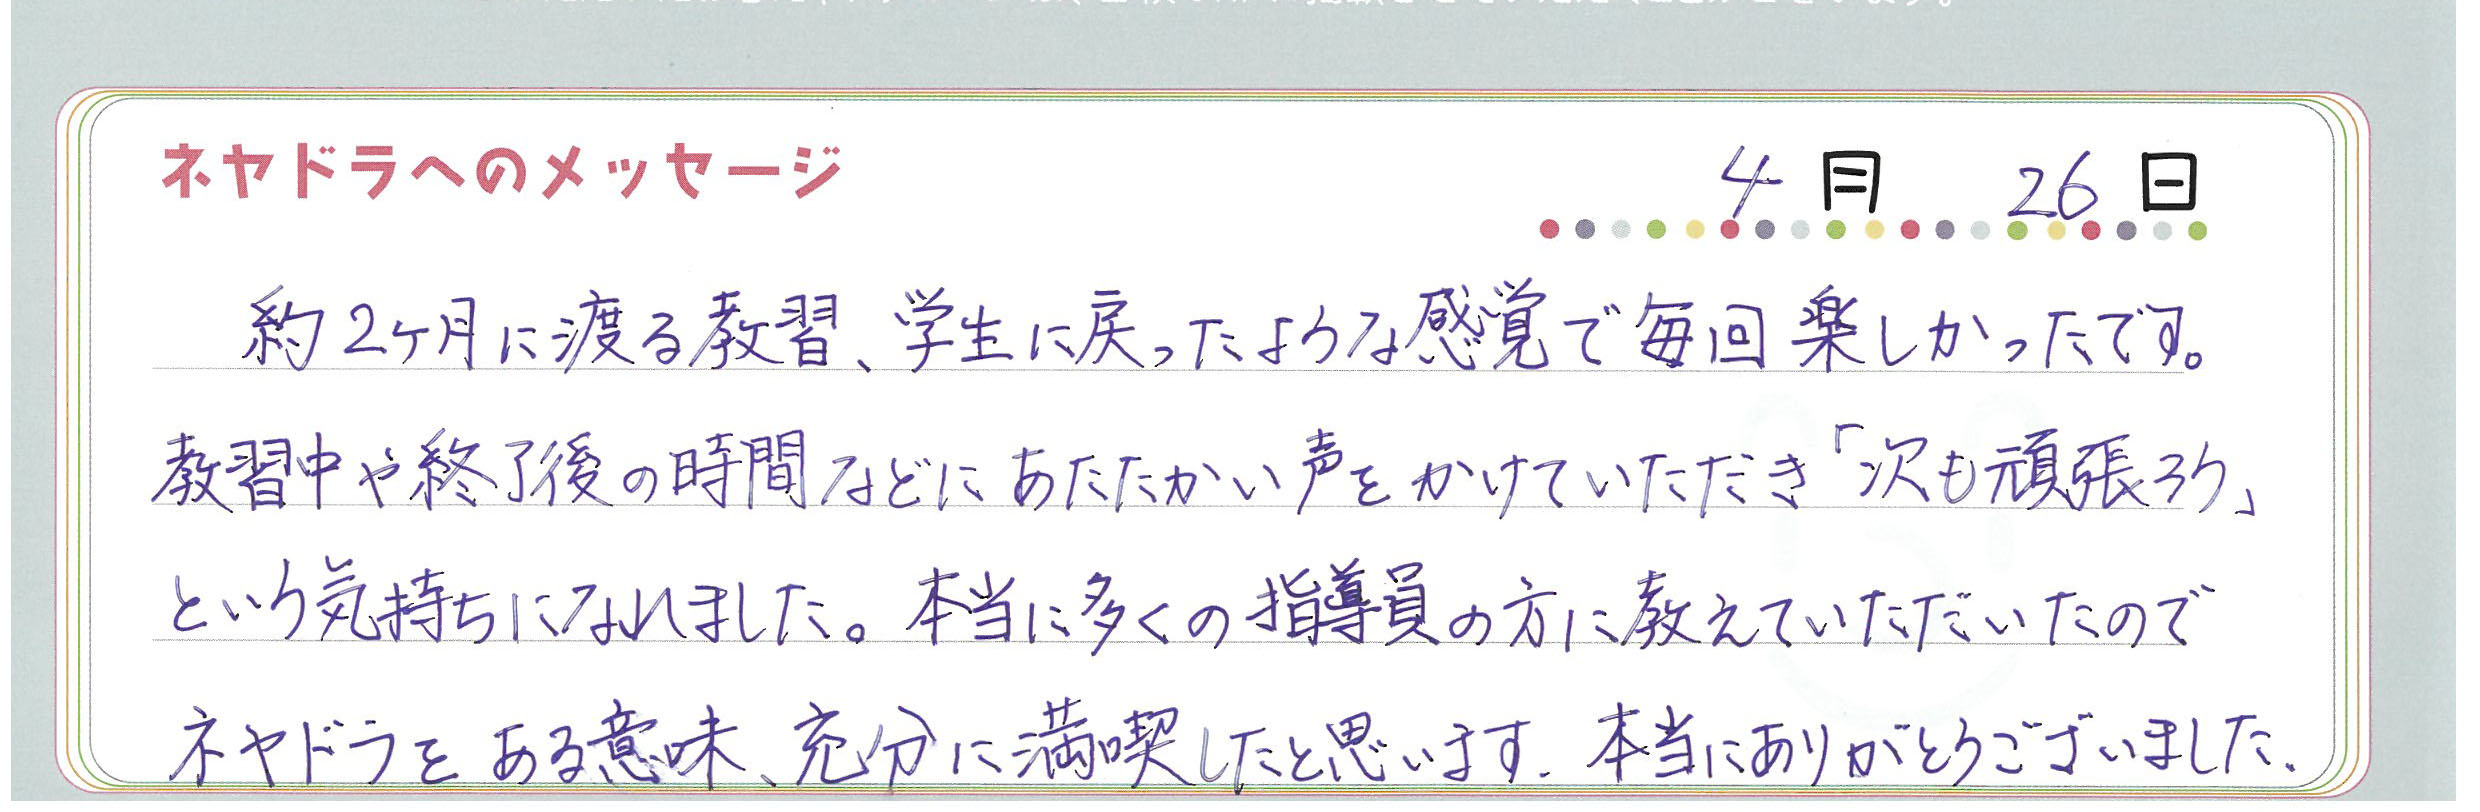 ネヤドラへのメッセージ
4月 26日
約2ヶ月に渡る教習、学生に戻ったような感覚で毎回楽しかったです。
教習中や終了後の時間などにあたたかい声をかけていただき「次も頑張ろう」
という気持ちになれました。本当に多くの指導員の方に教えていただいたので
ネヤドラをある意味、充分に満喫したと思います。本当にありがとうございました。